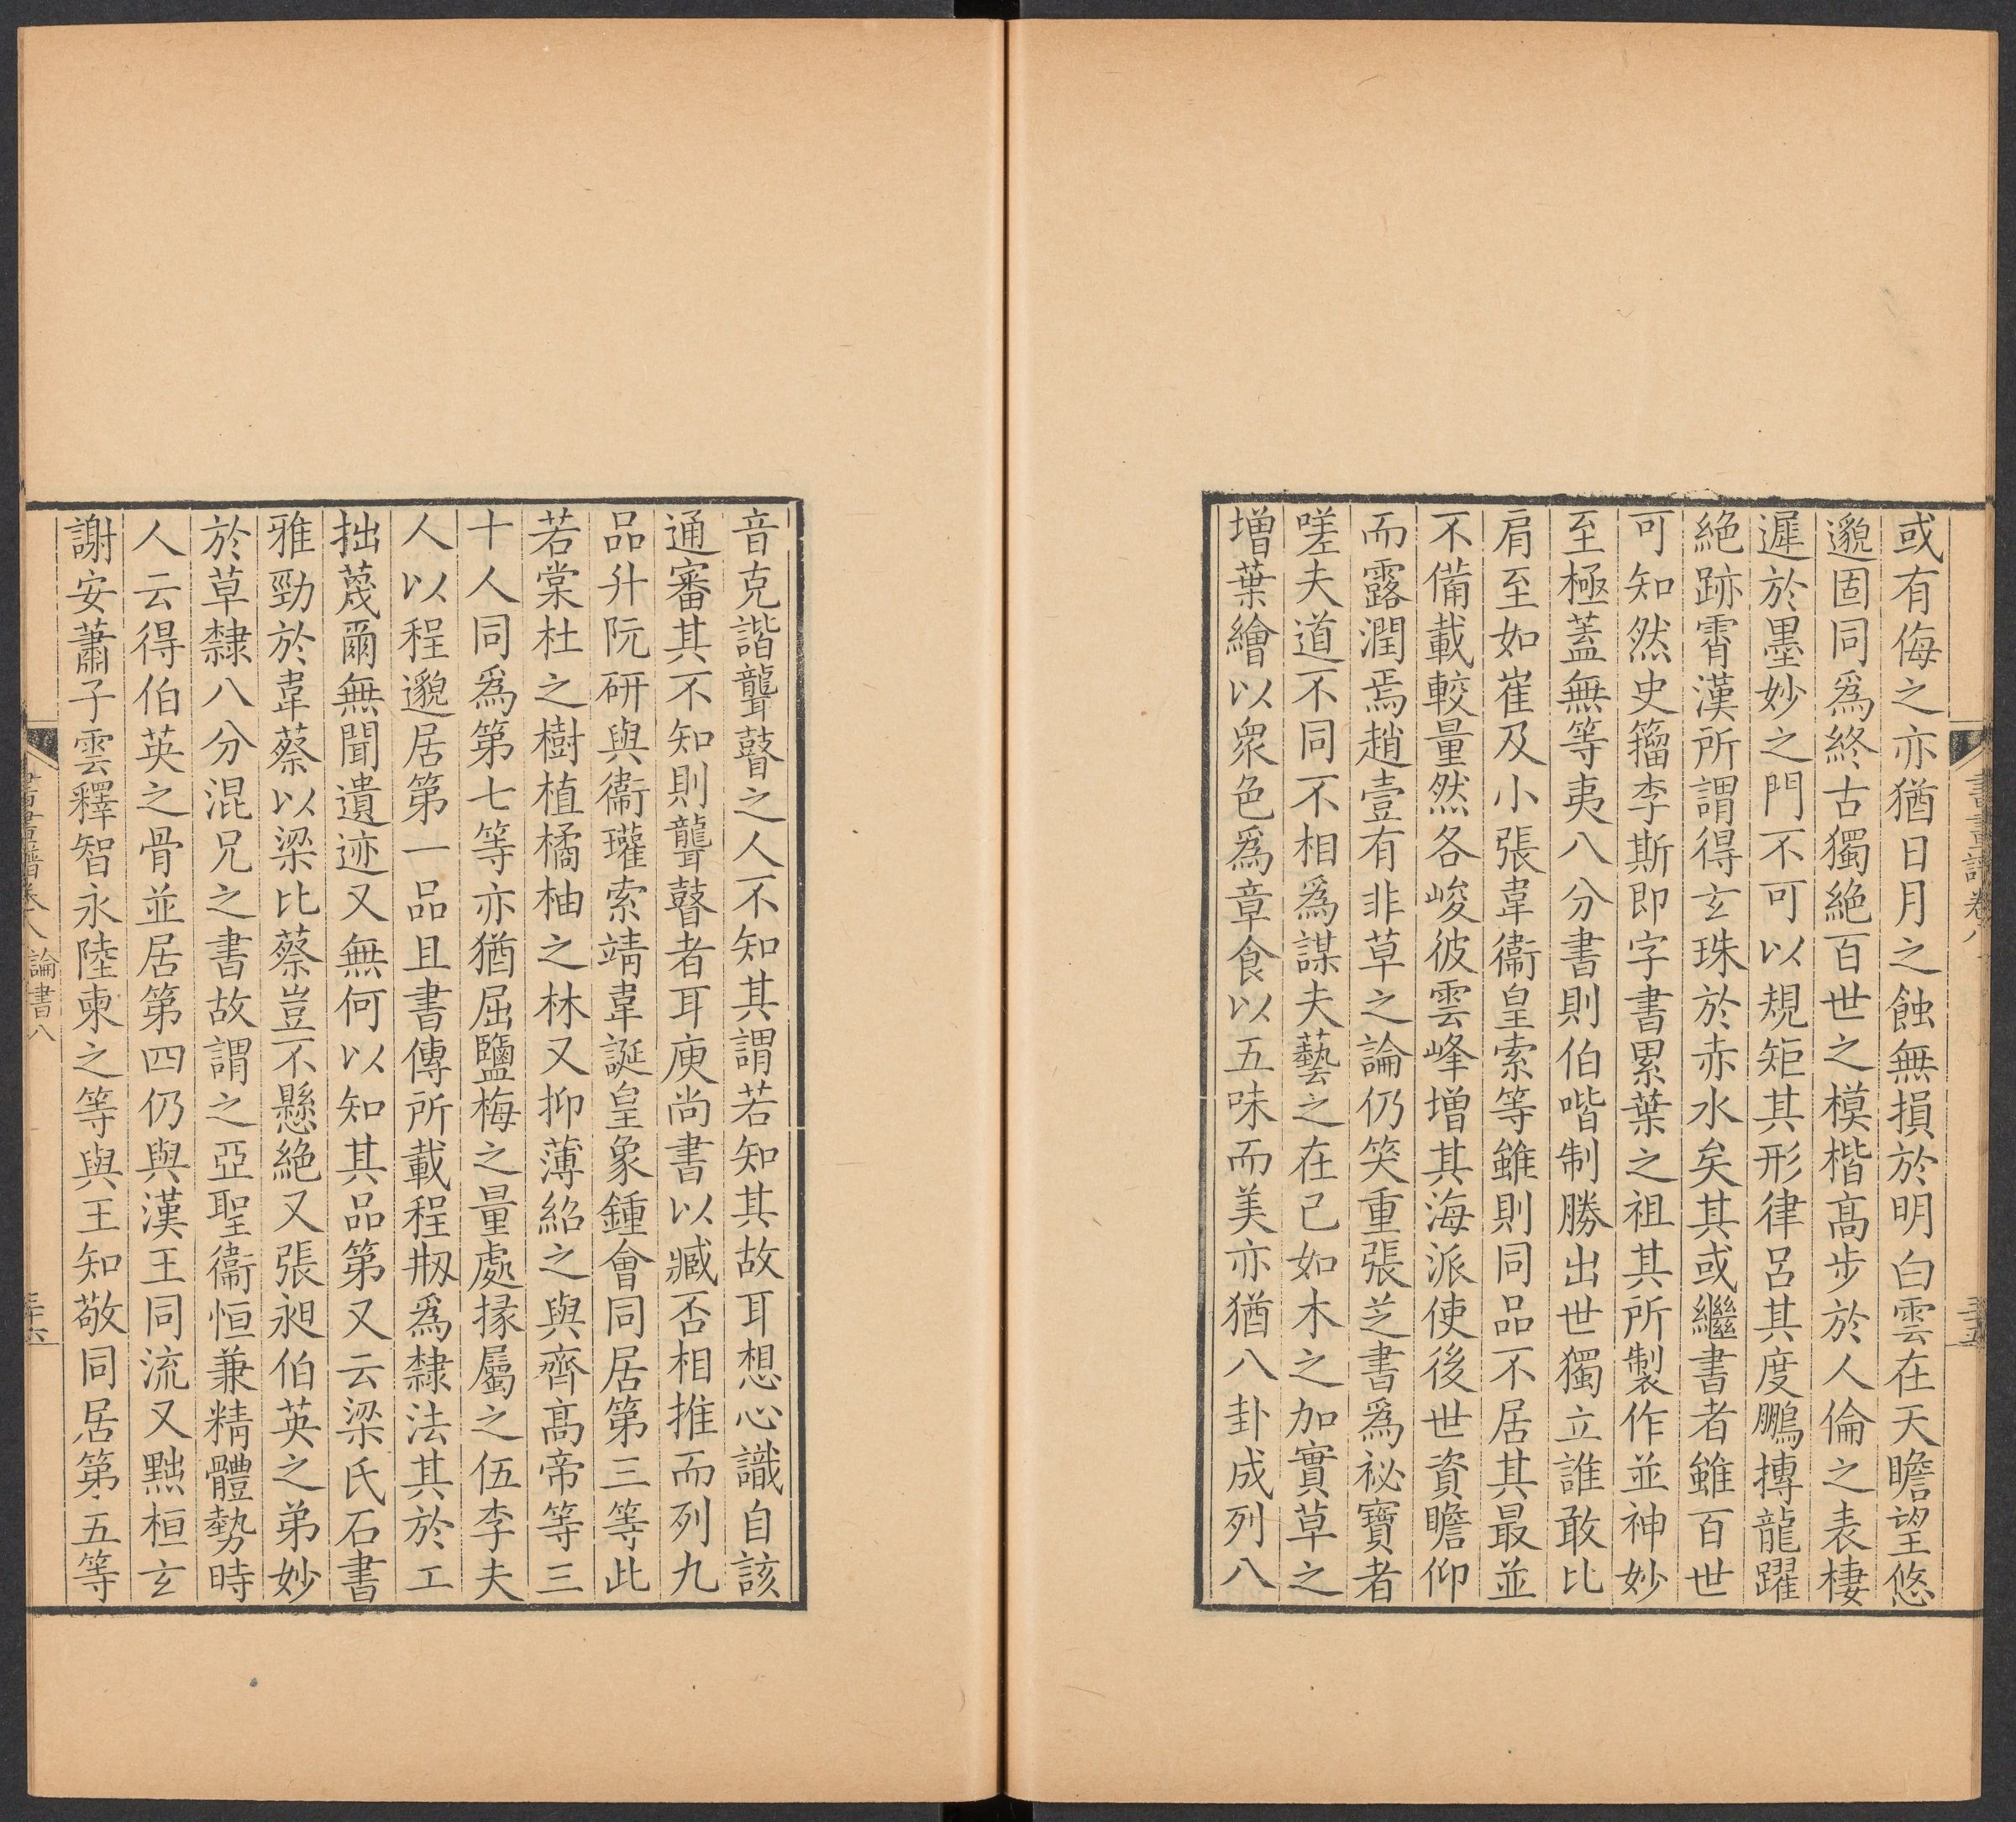 或有侮之亦猶日月之蝕無損於明白雲在天瞻望悠
邈固同爲終古獨絶百世之模楷髙步於人倫之表棲
遲於墨妙之門不可以規矩其形律呂其度鵬摶龍躍
絶跡霄漢所謂得玄珠於赤水矣其或繼書者雖百世
可知然史籀李斯即字書累葉之祖其所製作並神妙
至極蓋無等夷八分書則伯喈制勝出世獨立誰敢比
肩至如崔及小張韋衞皇索等雖則同品不居其最並
不備載較量然各峻彼雲峰增其海派使後世資瞻仰
而露潤焉趙壹有非草之論仍笑重張芝書爲祕寶者
嗟夫道不同不相爲謀夫藝之在己如木之加實草之
增葉繪以衆色爲章食以五味而美亦猶八卦成列八
音克諧聾瞽之人不知其謂若知其故耳想心識自該
通審其不知則聾瞽者耳庾尚書以臧否相推而列九
品升阮研與衞瓘索靖韋誕皇象鍾會同居第三等此
若棠杜之樹植橘柚之林又抑薄紹之與齊髙帝等三
十人同爲第七等亦猶屈鹽梅之量處掾屬之伍李夫
人以程邈居第一品且書傳所載程剏爲隸法其於工
拙蔑爾無聞遺迹又無何以知其品第又云梁氏石書
雅勁於韋蔡以梁比蔡豈不懸絶又張昶伯英之弟妙
於草隸八分混兄之書故謂之亞聖衞恒兼精體勢時
人云得伯英之骨並居第四仍與漢王同流又黜桓玄
謝安蕭子雲釋智永陸柬之等與王知敬同居第五等
書畫譜卷八 論書八